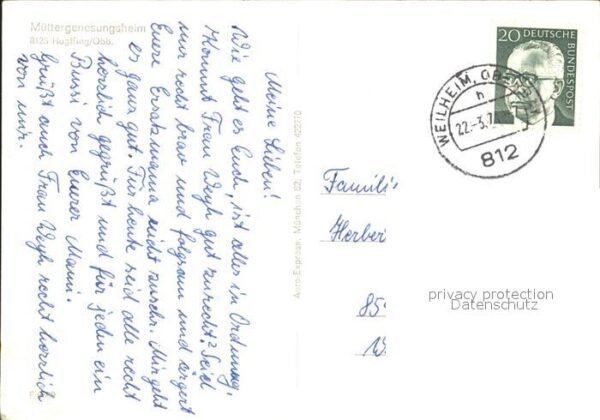 Müttergenesungsheim
8125 Huglfing/Obb.
Meine Lieben!
Wie geht es Euch, ist alles in Ordnung.
Kommt Frau Weyh gut zurecht? Seid
nur recht brav und folgsam und ärgert
Eure Ersatzmama nicht zusehr. Mir geht
es ganz gut. Für heute seid alle recht
herzlich gegrüßt und für jeden ein
Bussi von Eurer Mami.
Grüßt auch Frau Weyh recht herzlich
von mir.
Aero-Express, München 82, Telefon 422210
20 DEUTSCHE
BUNDESPOST
WEILHEIM, OBERBAY
h
22.-3.7
812
Famili
Herber
85
W
privacy protection
Datenschutz